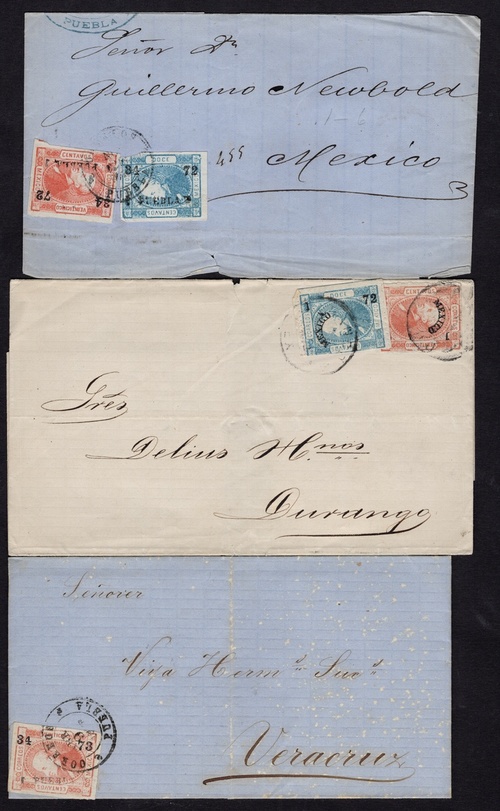 PUEBLA
Señor Dn
Guillermo Newbold
Mexico
455
CENTAVOS
34
72
PUEBLA
DOCE
34
72
PUEBLA
CENTAVOS
DOCE
1
72
MEXICO
CENTAVOS
MEXICO
1
Sres
Delius Hnos
Durango
Señores
Viya Hermd Sucd
Veracruz
PUEBLA
CORREOS
34
73
PUEBLA